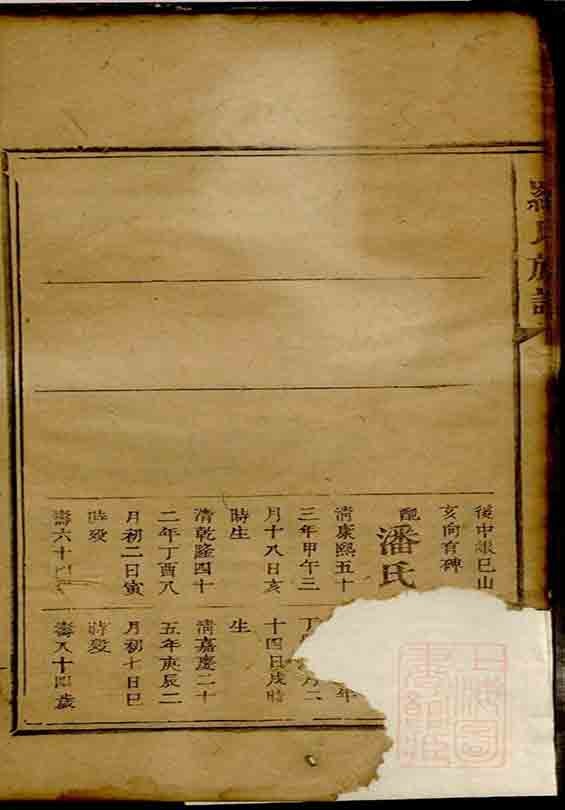 羅氏族譜
後中艮巳山
亥向有碑
配
潘氏
清康熙五十
三年甲午三
月十八日亥
時生
清乾隆四十
二年丁酉八
月初二日寅
時歿
壽六十四
年
丁
月二
十四日戌時
生
清嘉慶二十
五年庚辰二
月初七日巳
時歿
壽八十四歲